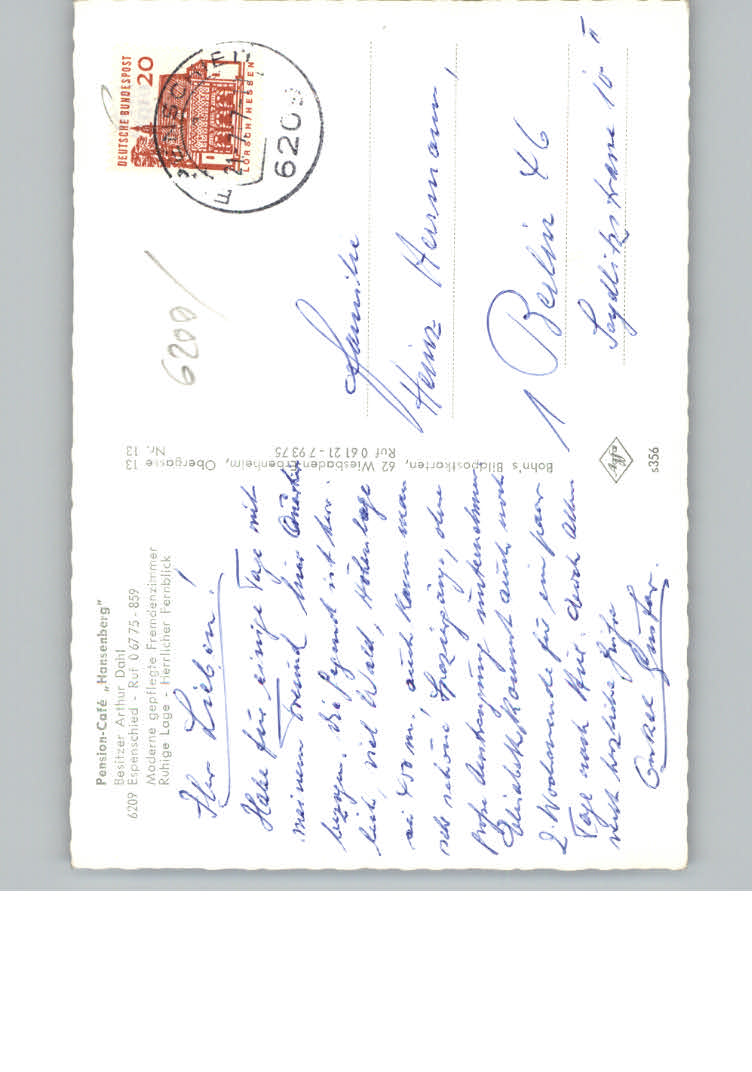 Pension-Café „Hansenberg"
Besitzer Arthur Dahl
6209 Espenschied - Ruf 0 67 75 - 859
Moderne gepflegte Fremdenzimmer
Ruhige Lage - Herrlicher Fernblick
Ihr Lieben!
Habe für einige Tage mit
meinem Freund hier Quartier
bezogen. Die Gegend ist herr-
lich, viel Wald, Höhenlage
ca 400 m., auch kann man
sehr schöne Spaziergänge, ohne
große Anstrengung unternehmen
Elisabeth kommt auch noch
2. Wochenende für ein paar
Tage nach hier. Euch allen
recht herzliche Grüße
Onkel Gustav.
Bohn's Bildpostkarten, 62 Wiesbaden-Erbenheim, Obergasse 13
Ruf 0 61 21 - 7 93 75
Nr. 13
s356
DEUTSCHE BUNDESPOST
20
LORSCH/HESSEN
6209
6200/
Familie
Heinz Hermann,
1 Berlin 46
Seydlitzstrasse 10 II